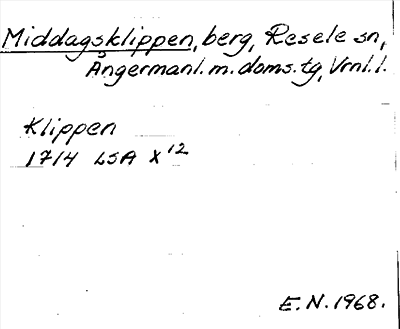 Middagsklippen, berg, Resele sn,
Ångermanl. m. doms. tg, Vrnl. l.
Klippen
1714 LSA X 12
E.N. 1968.